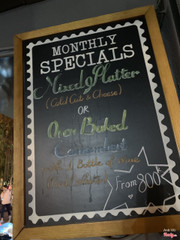 MONTHLY
SPECIALS
Mixed Platter
(Cold Cuts & Cheese)
OR
Oven Baked
Camembert
Bottle of
From 800